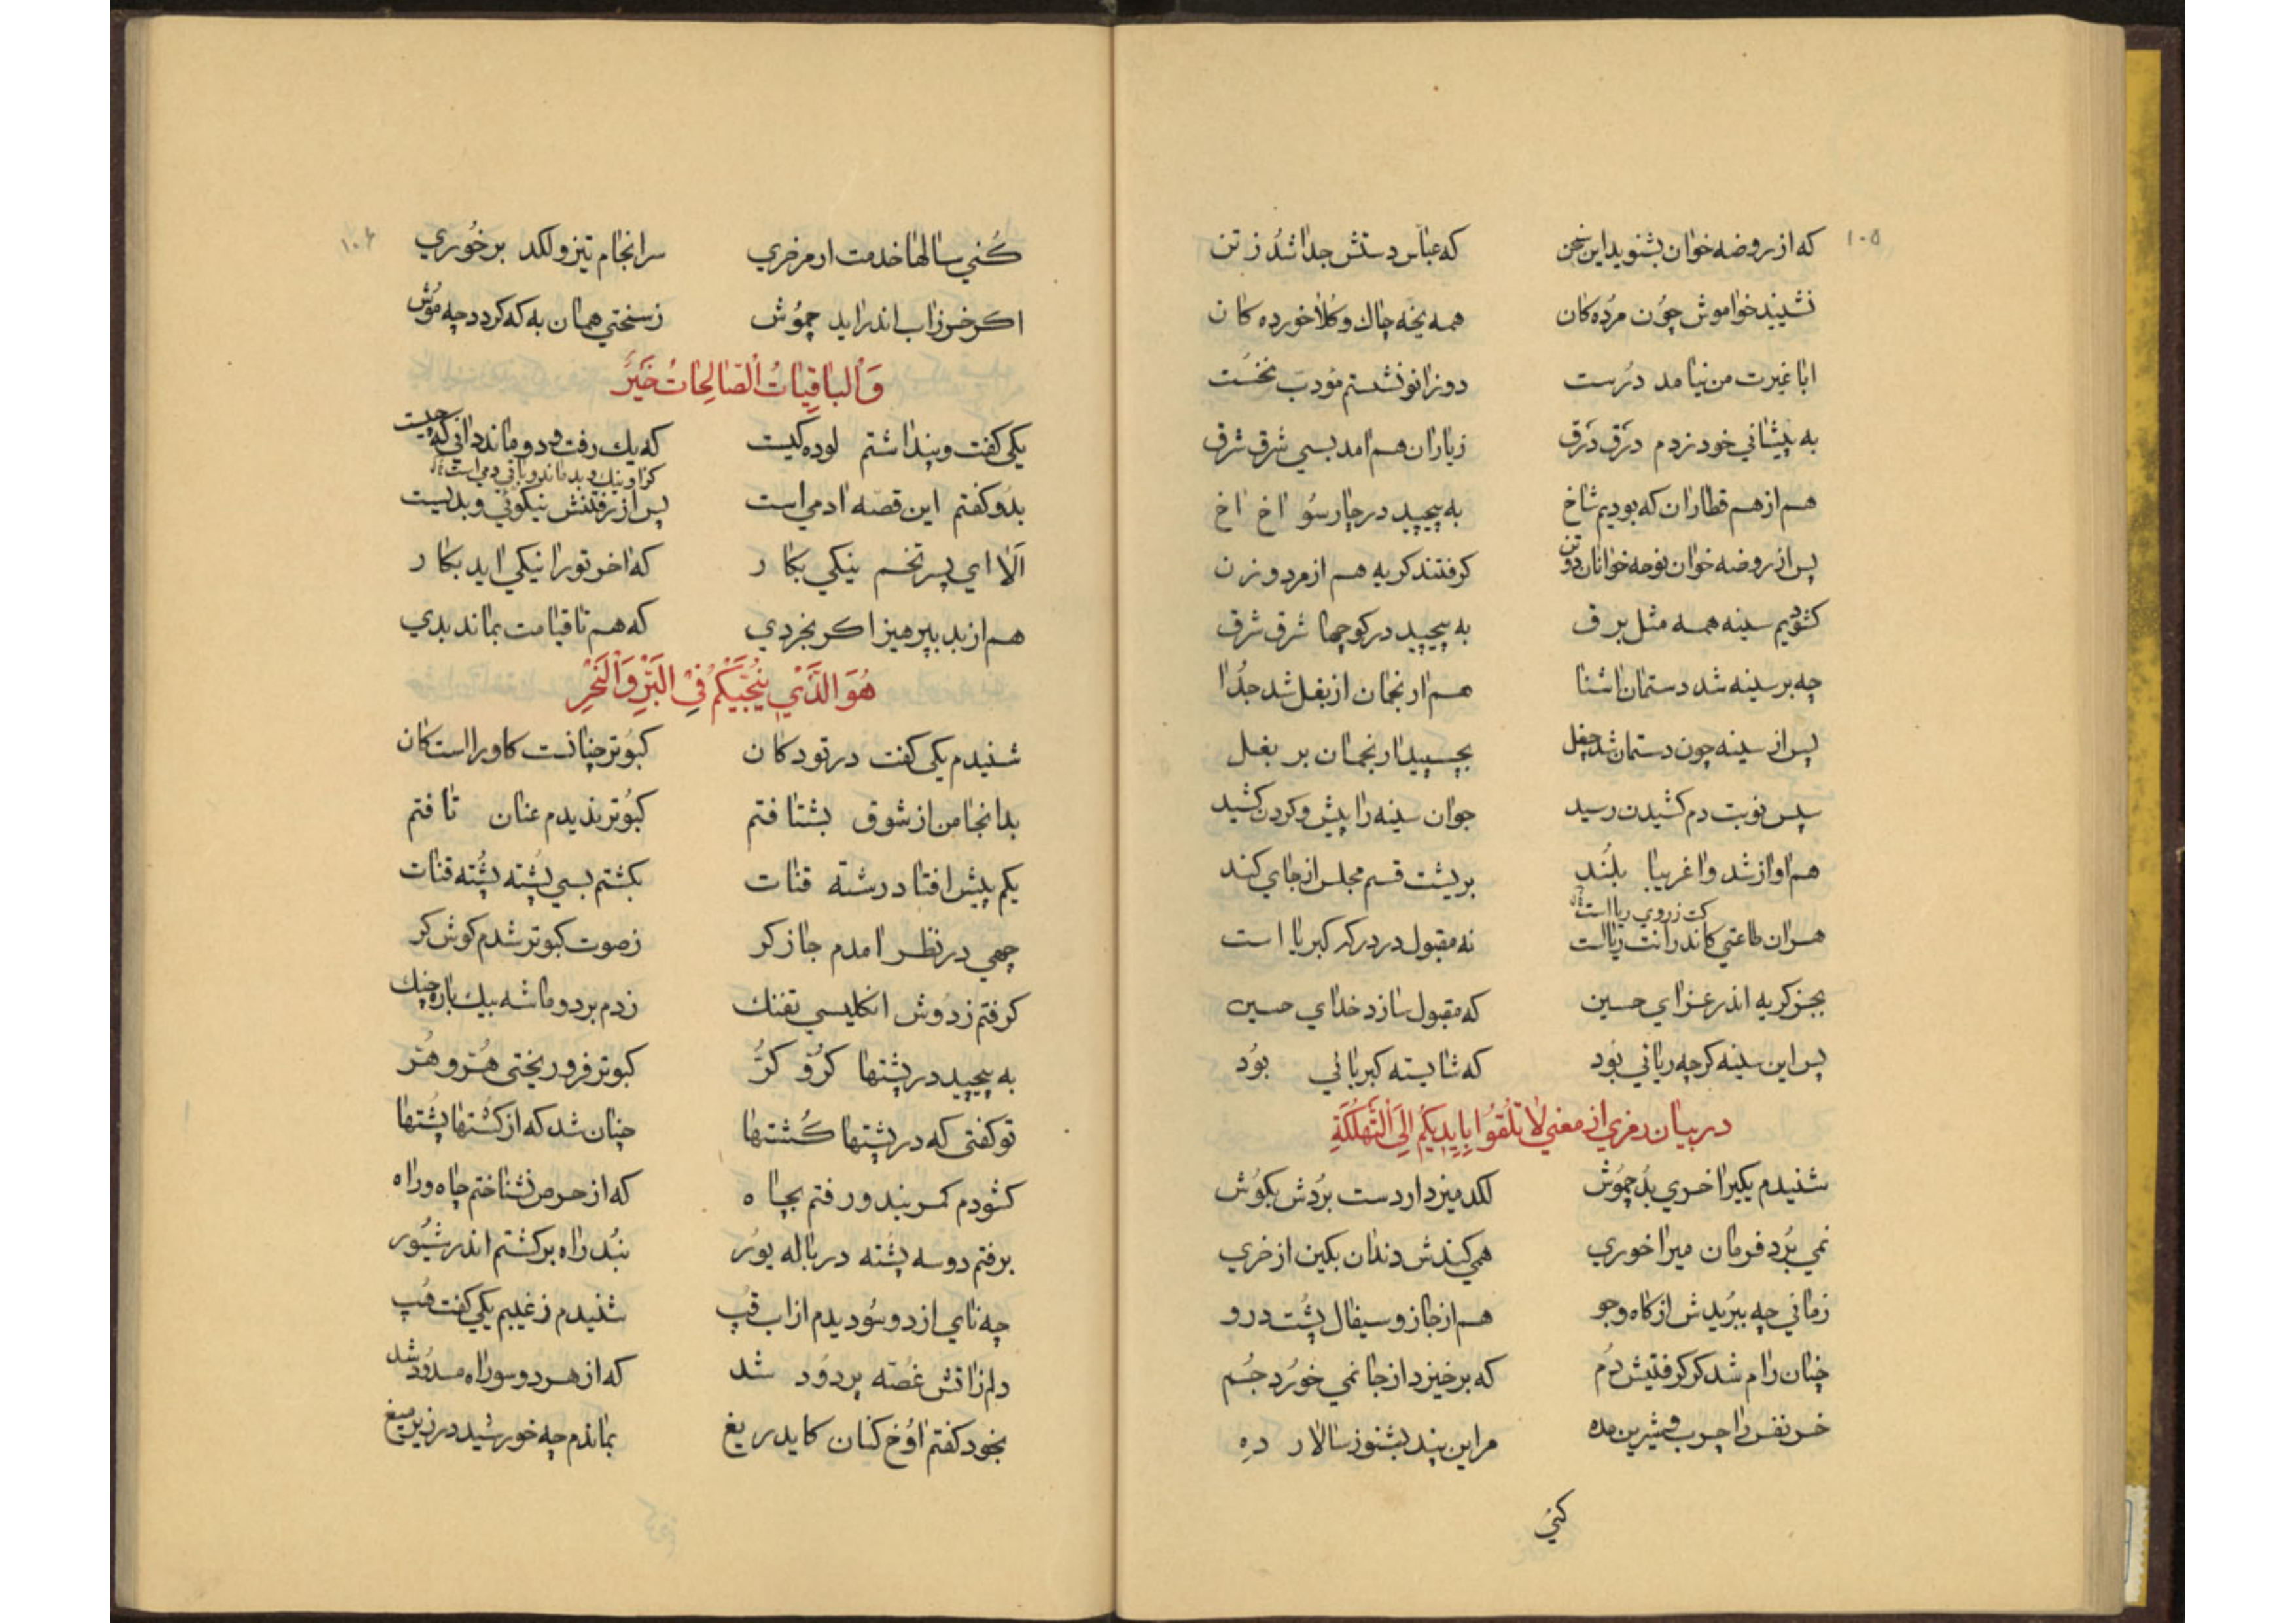 ۱۰۵
که از روضه خوان بشنوید این سخن که عباس دستش جدا شد ز تن
نشیند خواموش چون مرده کان همه یخه چاك و کلاخورده کان
ابا غیرت من نیامد درست دو زانو نشستم مودب نخست
به پیشانی خود زدم درق درق ز یاران هم امد بسی شرق شرق
هم از هم قطاران که بودیم شاخ به پیچید در چارسو اخ اخ
پس از روضه خوان نوحه خوانان دو تن کرفتند کریه هم از مرد و زن
کشودیم سینه همه مثل برق به پیچید در کوچها شرق شرق
چه بر سینه شد دستمان اشنا هم ارنجمان از بغل شد جدا
پس از سینه چون دستمان شد چغل بچسپید ارنجمان بر بغل
سپس نوبت دم کشیدن رسید جوان سینه را پیش و کردن کشید
هم اواز شد واغریبا بلند بر پشت قسم مجلس از جای کند
کت ز روی ریا است
هر ان طاعتی کاندر انت ریا است نه مقبول در درکه کبریا است
بجز کریه اندر عزای حسین که مقبول سازد خدای حسین
پس این سینه کرچه ریائی بود که شایسته کبریائی بود
در بیان رمزی از معنی لا تُلقُوا بِاَیدِیکُم اِلَی التَّهلُکَةِ
شنیدم یکیرا خری بد چموش لکد میزد ار دست بردش بکوش
نمی برد فرمان میراخوری همی کندش دندان بکین از خری
زمانی چه ببریدش از کاه و جو هم از جاز و سیفال پشت درو
چنان رام شد کر کرفتیش دم که برخیزد از جا نمی خورد جم
خر نفس را چرب و شیرین مده مر این پند بشنو ز سالار ده
کنی
۱۰۶
کنی سالها خدمت ار مر خری سرانجام تیز و لکد بر خوری
اکر خر ز اب اندر اید چموش ز سختی همان به که کردد چه موش
وَالباقِیاتُ الصّالِحاتُ خَیرٌ
یکی کفت و پنداشتم لوده کیست که یك رفت و دو ماند دانی که چیست
کزا و نیك و بد ماند و باقی دمی است
بدو کفتم این قصه ادمی است پس از رفتنش نیکوئی و بدیست
الا ای پسر تخم نیکی بکار که اخر تورا نیکی اید بکار
هم از بد بپرهیز اکر بخردی که هم تا قیامت بماند بدی
هُوَ الَّذی یُنجّیکُم فِی البَرِّ وَالبَحرِ
شنیدم یکی کفت در تودکان کبوتر چنانست کاورا استکان
بدانجا من از شوق بشتافتم کبوتر ندیدم عنان تافتم
یکم پیش افتاد رشته قنات بکشتم بسی پشته پشته قنات
چهی در نظر امدم جازکر ز صوت کبوتر شدم کوش کر
کرفتم ز دوش انکلیسی تفنك زدم بر دو ماشه بیك باره چنك
به پیچید در پشتها کر و کر کبوتر فرو ریختی هر و هر
تو کفتی که در پشتها کشتها چنان شد که از کشتها پشتها
کشودم کمربند و رفتم بچاه که از حرص نشناختم چاه و راه
برفتم دو سه پشته در باله یور نبد راه برکشتم اندر شیور
چه نای از دو سو دیدم از اب قپ شنیدم ز غیبم یکی کفت هپ
دلم ز اتش غصه پر دود شد که از هر دو سو راه مسدود شد
بخود کفتم اوخ کنان کای دریغ بماندم چه خورشید در زیر میغ